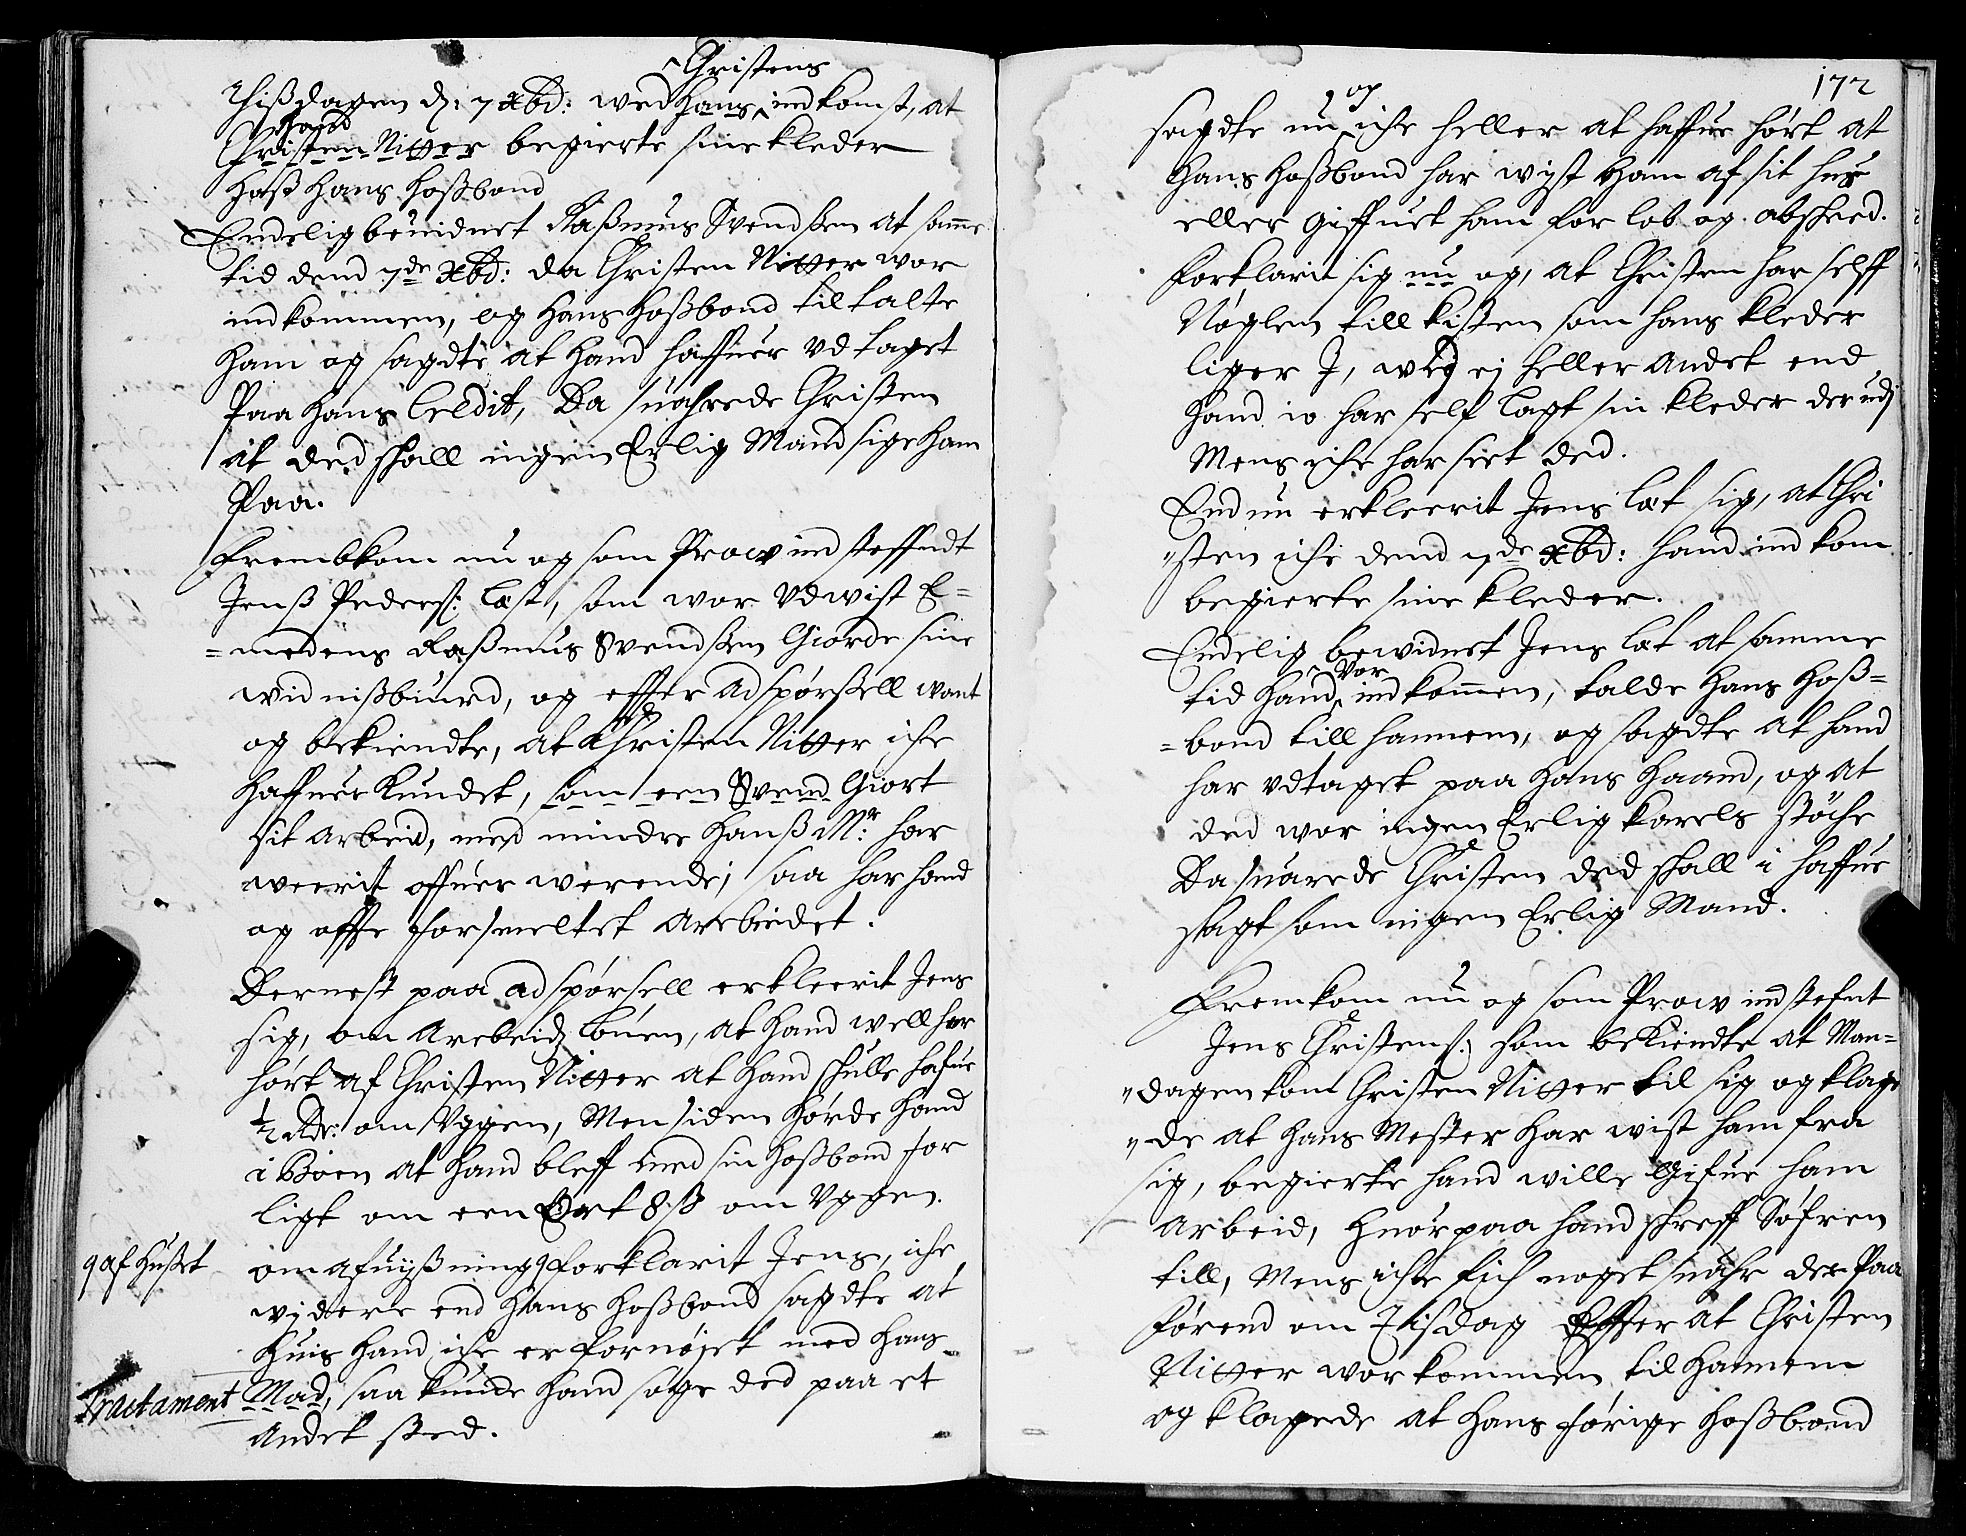 Christens
Thißdagen d: 7 xbd: wed Hans indkomst, at
hand
Christen Nitter begierte sine kleder
hoß Hans Hoßbond
Endelig bevidnet Raßmus Svendsen at samme
tid dend 7de xbd: da Christen Nitter wor
indkommen, og Hans Hoßbond tiltalte
ham og sagdte at hand haffuer vdtaget
Paa Hans Credit, Da suahrede Christen
at ded schall ingen Erlig Mand sige ham
Paa.
Frembkom nu og som Prow indsteffndt
Jenß Peders: Læst, som wor vdwist E-
=medens Raßmus Svendsen Giorde sine
widnißbiurd, og effter adspørßell want
og bekiendte, at Christen Nitter iche
haffuer kundet, som een Svend Giort
sit arbeid, med mindre Hanß Mr: har
weerit offuerwerende; saa har hand
og offte forsmeltet arbeidet.
Dernest paa adspørsell erkleerit Jens
sig, om Arbeidzlønen, at hand well har
hørt af Christen Nitter at hand schulle hafue
½ Rdr: om Vggen, Men siden hørde hand
i Bøen at hand bleff med sin hoßbond for
ligt om een Ort 8 ß om Vggen.
om afuißning forklarit Jens, iche
af Hußet
widere end Hans Hoßbond sagdte at
huis hand iche er fornøjet med Hans
Mad, saa kunde hand søge ded paa et
Tractament
Andet sted.
172
og
sagdte nu iche heller at haffue hørt at
Hans hoßbond har wist ham af sit huß
eller giffuet ham forlob og absheed.
forklarit sig nu og, at Christen har selff
Nøglen till kisten som hans kleder
liger J, wed ej heller andet end
hand jo har self lagt sin kleder derudj
Mens iche har seet ded.
End nu erkleerit Jens Læt sig, at Chri
"sten iche dend 7de xbd: hand indkom
begierte sine kleder.
Endelig bewidnet Jens Læt at samme
wor
tid hand indkommen, talde Hans Hoß=
=bond till hannem, og sagdte at hand
har vdtaget paa Hans Haand, og at
ded wor ingen Erlig karels støche
Da suarede Christen ded schall i haffue
sagt som ingen Erlig Mand.
Fremkom nu og som Prow indstefnt
Jens Christens: som bekiendte at Man=
"dagen kom Christen Nitter til sig og klage
"de at Hans Mester har wist ham fra
sig, begierte hand wille gifue ham
arbeid, huorpaa hand schreff Søfren
till, Mens iche fich noget suahr der Paa
førend om Tisdag Effter at Christen
Nitter wor kommen til hannem
og klagede at Hans forige hoßbond